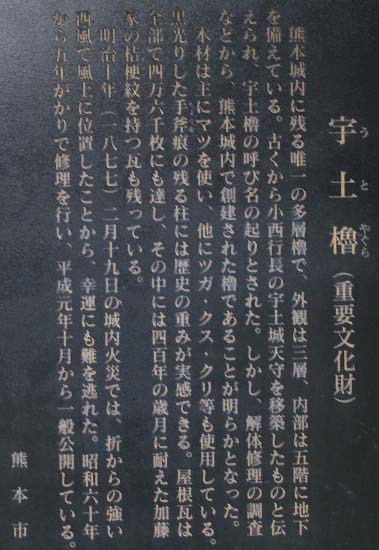 宇土櫓(重要文化財)
うとやぐら
熊本城内に残る唯一の多層櫓で、外観は三層、内部は五階に地下
を備えている。古くから小西行長の宇土城天守を移築したものと伝
えられ、宇土櫓の呼び名の起りとされた。しかし、解体修理の調査
などから、熊本城内で創建された櫓であることが明らかとなった。
木材は主にマツを使い、他にツガ・クス・クリ等も使用している。
黒光りした手斧痕の残る柱には歴史の重みが実感できる。屋根瓦は
全部で四万六千枚にも達し、その中には四百年の歳月に耐えた加藤
家の桔梗紋を持つ瓦も残っている。
明治十年(一八七七)二月十九日の城内火災では、折からの強い
西風で風上に位置したことから、幸運にも難を逃れた。昭和六十年
から五年がかりで修理を行い、平成元年十月から一般公開している。
熊本市